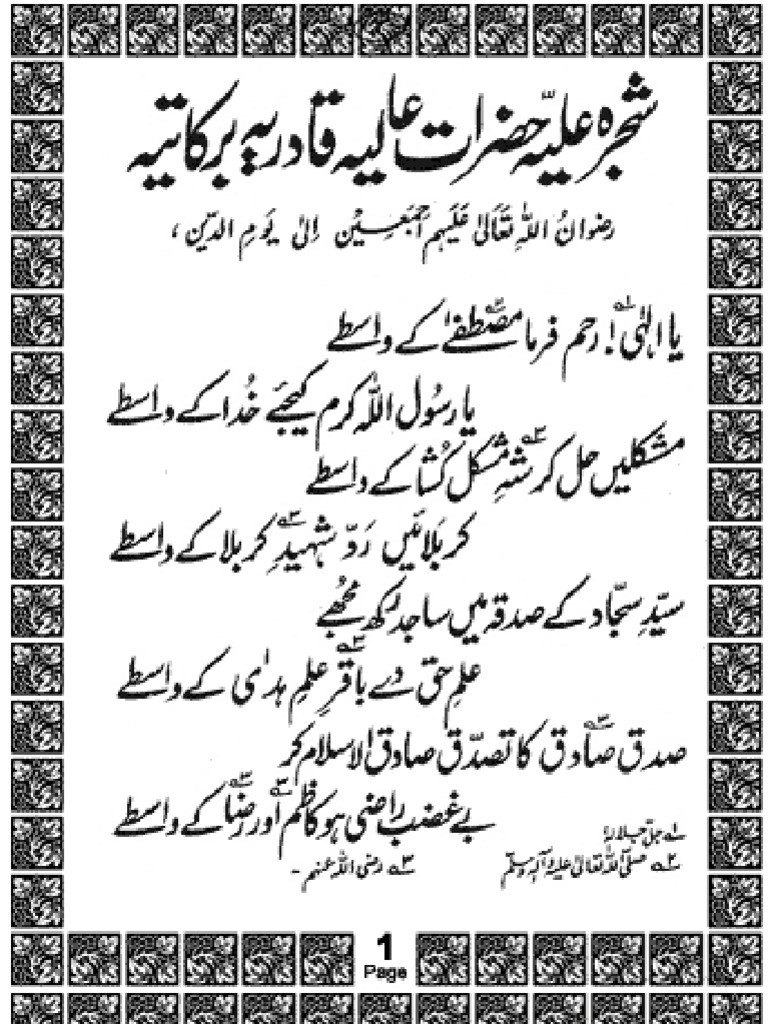 شجرہ علیّہ حضرات عالیہ قادریہ برکاتیہ
رضوانُ اللہِ تعَالٰی عَلَیہِم اَجمَعِین اِلیٰ یَومِ الدّین،
یا الٰہی۱؎! رحم فرما مصطفٰے۲؎ کے واسطے
یا رسُول اللہ کرم کیجئے خُدا کے واسطے
مشکلیں حل کر شہِ مشکل کُشا۳؎ کے واسطے
کر بَلائیں رَدّ شہیدِ۳؎ کربلا کے واسطے
سیّدِ سجّاد کے صدقہ میں ساجد رکھ مجُھے
علمِ حق دے باقرِ۳؎ علمِ ہدیٰ کے واسطے
صدق صادق۳؎ کا تصدّق صادق الاسلام کر
بے غضب راضی ہو کاظم۳؎ اور رضا۳؎ کے واسطے
۱؎ جلّ جلالہٗ
۲؎ صلّی اللہ تعالیٰ علیہ وآلہٖ وسلّم ۳؎ رضی اللہ عنہم -
1
Page